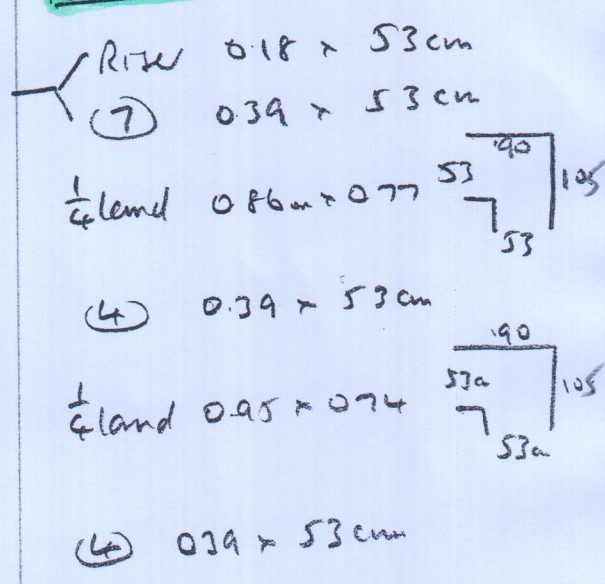 Riser 0.18 x 53cm
7 0.39 x 53cm
1/4 land 0.86m x 0.77 53 .90 105 53
4 0.39 x 53cm
1/4 land 0.95 x 0.74 53a .90 105 53a
4 039 x 53cm